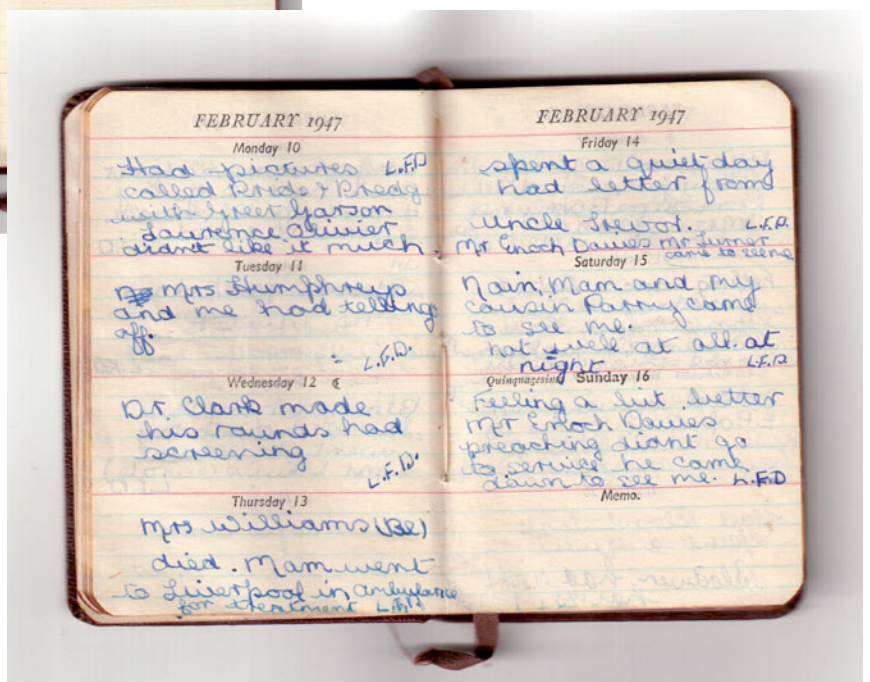 FEBRUARY 1947
Monday 10
Had pictures L.F.D
called Pride & Predg
with Greer Garson
Laurence Olivier
didn't like it much.
Tuesday 11
Mrs Humphreys
and me had telling
off.
L.F.D.
Wednesday 12
Dr. Clark made
his rounds had
screening
L.F.D.
Thursday 13
Mrs Williams (Bl)
died. Mam went
to Liverpool in ambulance
for treatment L.F.D
FEBRUARY 1947
Friday 14
spent a quiet day
had letter from
Uncle Trevor. L.F.D.
Mr Enoch Davies Mr Turner
came to see me
Saturday 15
Nain, Mam and my
cousin Parry came
to see me.
not well at all at
night L.F.D.
Quinquagesima Sunday 16
Feeling a bit better
Mr Enoch Davies
preaching didnt go
to service he came
down to see me. L.F.D
Memo.